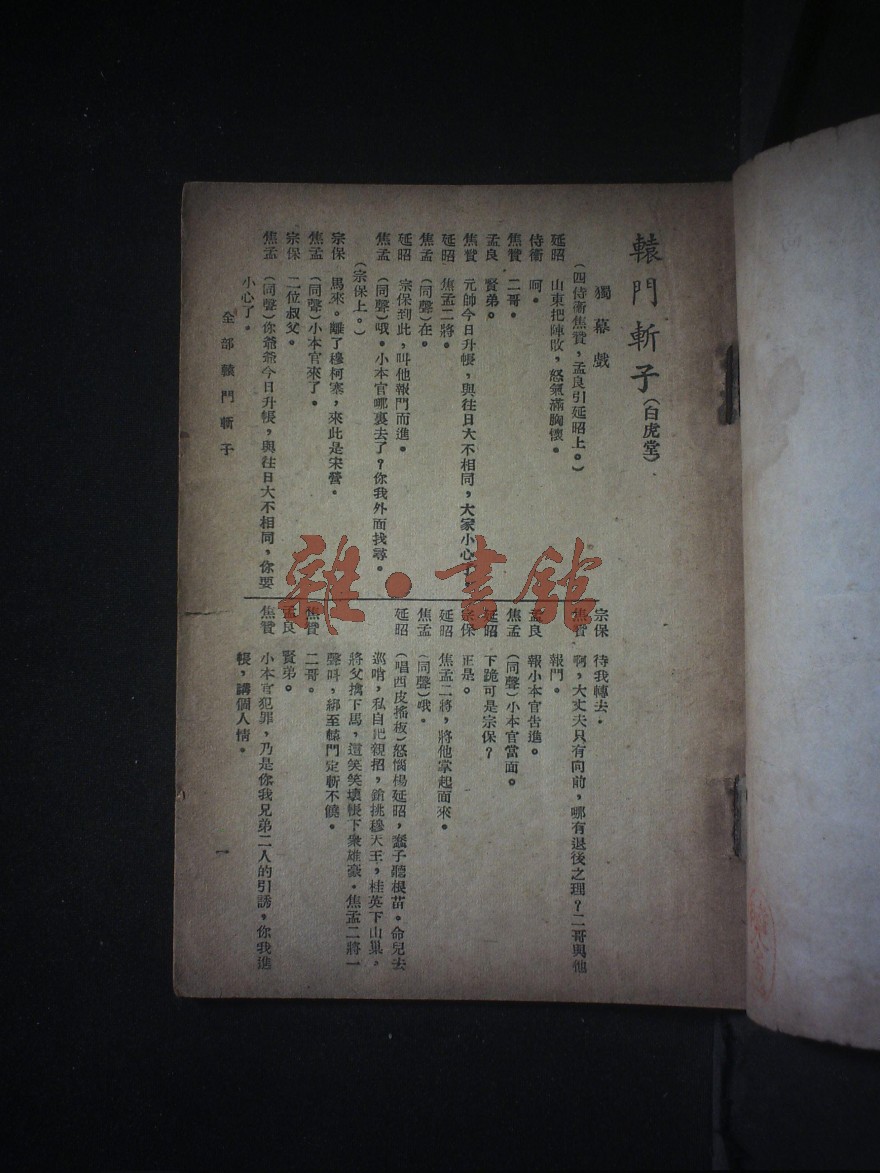 轅門斬子(白虎堂)
獨幕戲
(四侍衛焦贊,孟良引延昭上。)
延昭 山東把陣敗,怒氣滿胸懷。
侍衛 呵。
焦贊 二哥。
孟良 賢弟。
焦贊 元帥今日升帳,與往日大不相同,大家小心了。
延昭 焦孟二將。
焦孟 (同聲)在。
延昭 宗保到此,叫他報門而進。
焦孟 (同聲)哦。小本官哪裏去了?你我外面找尋。
(宗保上。)
宗保 馬來。離了穆柯寨,來此是宋營。
焦孟 (同聲)小本官來了。
宗保 二位叔父。
焦孟 (同聲)你爺爺今日升帳,與往日大不相同,你要
小心了。
宗保 待我轉去。
焦贊 啊,大丈夫只有向前,哪有退後之理?二哥與他
報門。
孟良 報小本官告進。
焦孟 (同聲)小本官當面。
延昭 下跪可是宗保?
宗保 正是。
延昭 焦孟二將,將他掌起面來。
焦孟 (同聲)哦。
延昭 (唱西皮搖板)怒惱楊延昭,蠢子聽根苗。命兒去
巡哨,私自把親招,鎗挑穆天王,桂英下山巢,
將父擒下馬,還笑笑壞帳下衆雄豪。焦孟二將一
聲叫,綁至轅門定斬不饒。
焦贊 二哥。
孟良 賢弟。
焦贊 小本官犯罪,乃是你我兄弟二人的引誘,你我進
帳,講個人情。
全部轅門斬子
一
雜·書館